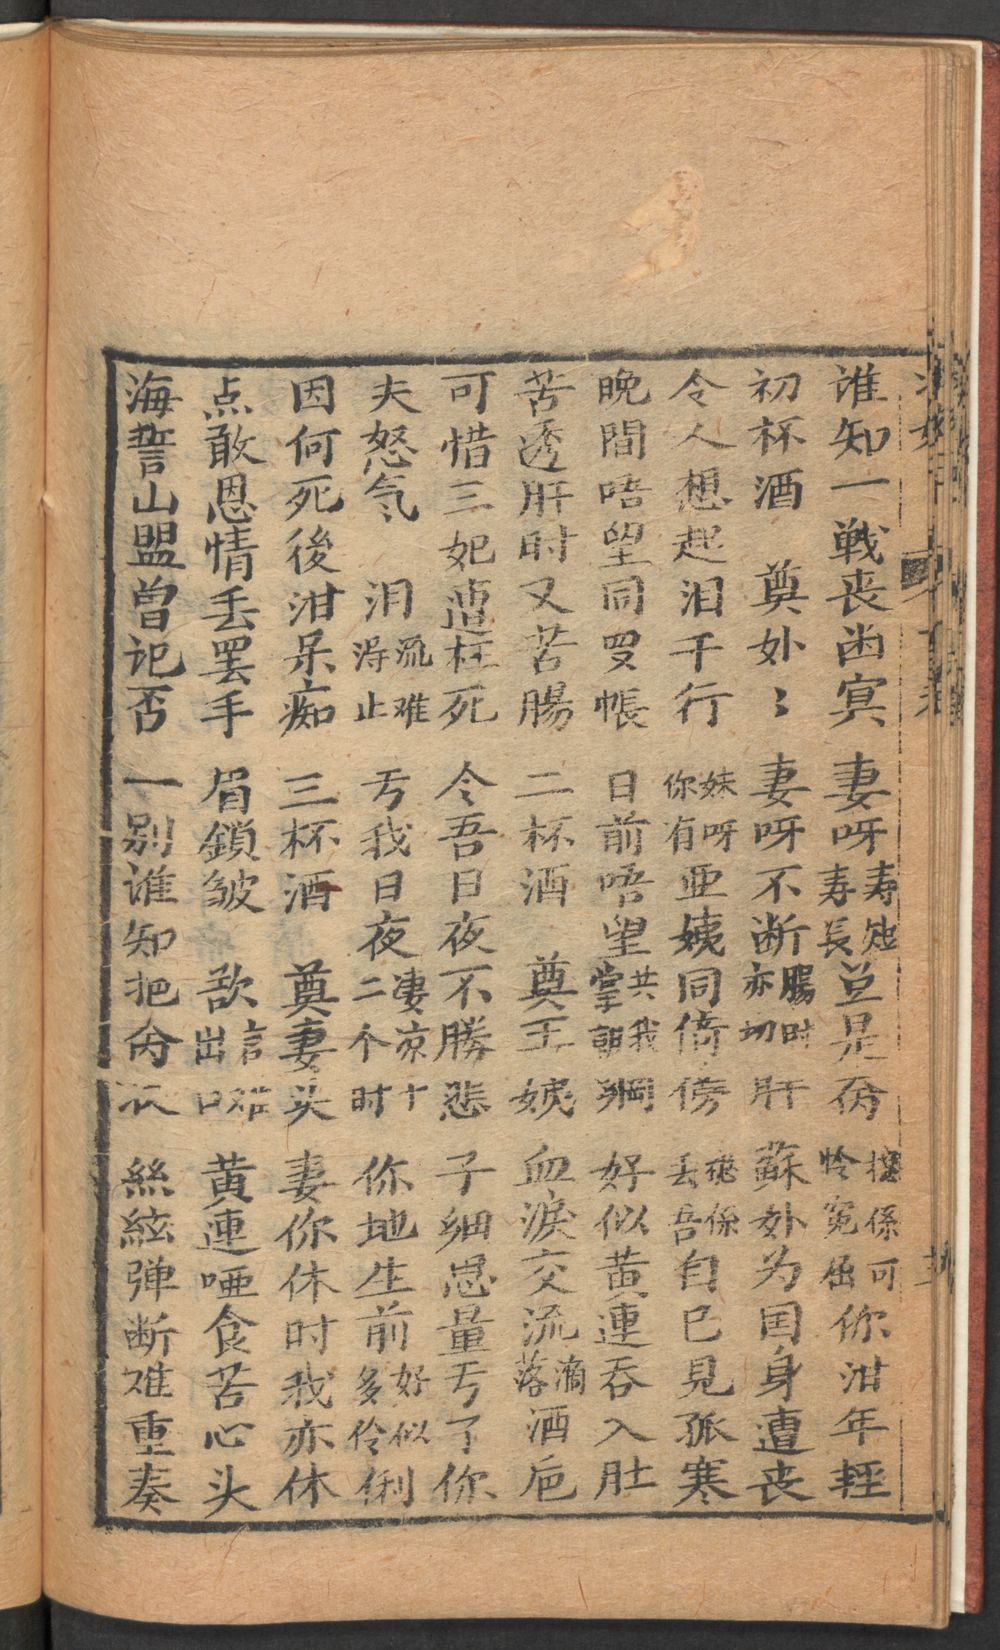 谁知一戦丧凾冥　妻呀寿长寿短豈是�伤怜冤屈係可你泔年輕
初杯酒　奠外〻　妻呀不断腸时亦切肝　蘇外为囯身遭丧
令人想起泪千行　妹呀你有亚姨同倚傍　丢吾係自己見孤寒
晚間唔望同罗帳　日前唔望共我掌朝綱　好似黄連吞入肚
苦透肝时又苦腸　二杯酒　奠王姨　血淚交流滴落酒卮
可惜三妃遭枉死　令吾日夜不勝悲　子細思量亏了你
夫怒气　泪流难得止　亏我日夜凄凉十二个时　你地生前好似多伶俐
因何死後泔呆痴　三杯酒　奠妻头　妻你休时我亦休
点敢恩情丢罢手　眉鎖皱　欲言难出口　黄連哑食苦心头
海誓山盟曾记否　一别谁知把命休　絲絃弹断难重奏